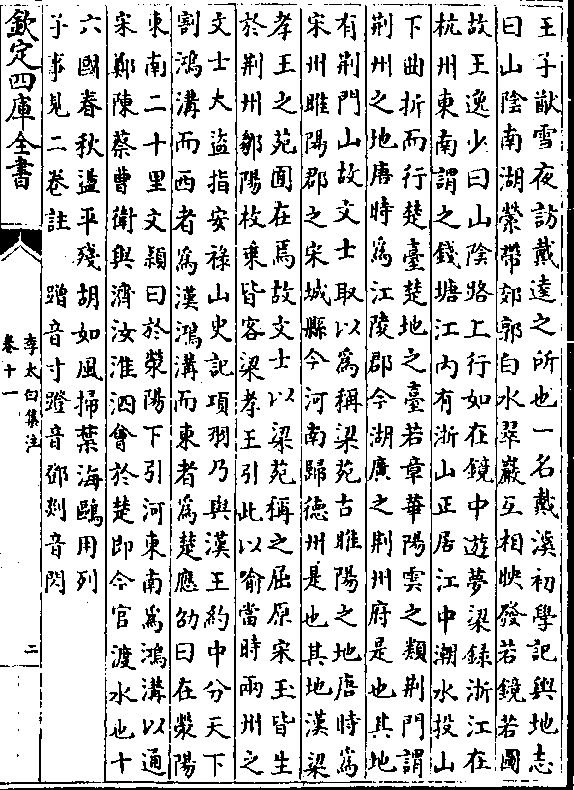 王子猷雪夜訪戴逵之所也一名戴溪初學記輿地志
曰山陰南湖縈帶郊郭白水翠巖互相映發若鏡若圖
故王逸少曰山陰路上行如在鏡中遊夢梁錄浙江在
杭州東南謂之錢塘江内有浙山正居江中潮水投山
下曲折而行楚臺楚地之臺若章華陽雲之類荆門謂
荆州之地唐時為江陵郡今湖廣之荆州府是也其地
有荆門山故文士取以為稱梁苑古睢陽之地唐時為
宋州睢陽郡之宋城縣今河南歸德州是也其地漢梁
孝王之苑囿在焉故文士以梁苑稱之屈原宋玉皆生
於荆州鄒陽枚乗皆客梁孝王引此以喻當時兩州之
文士大盜指安禄山史記項羽乃與漢王約中分天下
割鴻溝而西者為漢鴻溝而東者為楚應劭曰在滎陽
東南二十里文穎曰於滎陽下引河東南為鴻溝以通
宋鄭陳蔡曹衛與濟汝淮泗會於楚即今官渡水也十
六國春秋盪平殘胡如風掃葉海鷗用列
子事見二卷註 蹭音寸蹬音鄧剡音閃
欽定四庫全書
李太白集注
卷十一
二